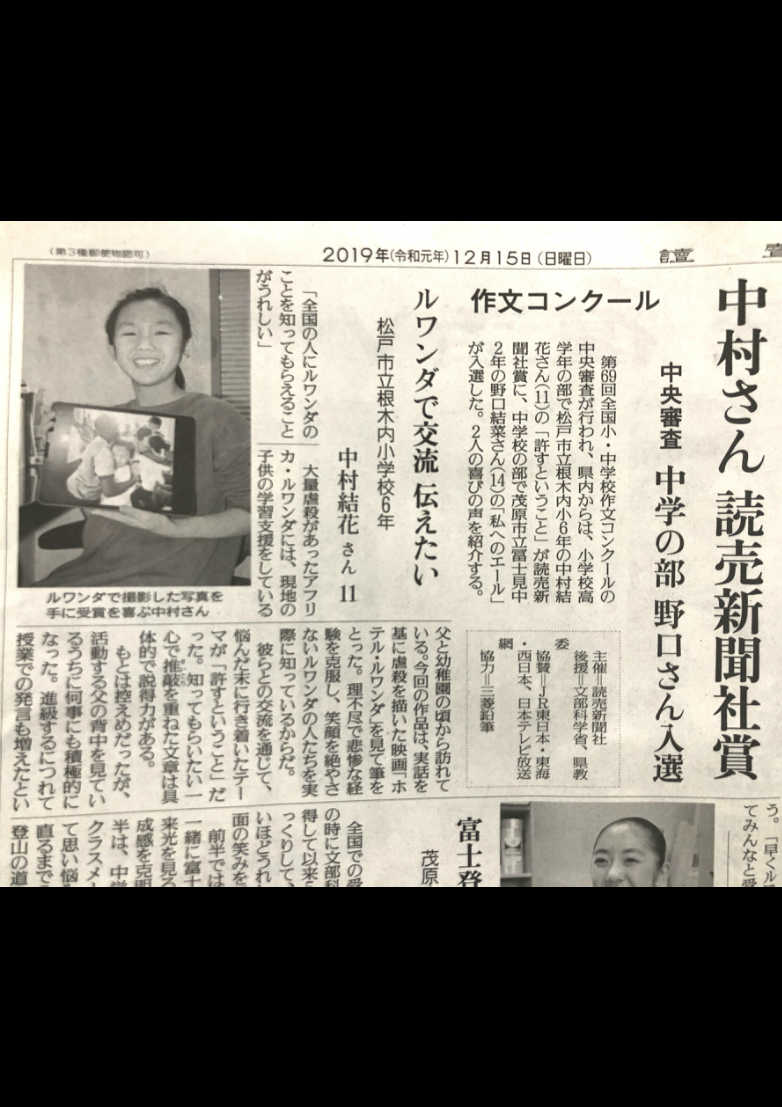 (第3種郵便物認可)
2019年(令和元年)12月15日(日曜日)
讀賣
中村さん 読売新聞社賞
中央審査 中学の部 野口さん入選
作文コンクール
第69回全国小・中学校作文コンクールの
中央審査が行われ、県内からは、小学校高
学年の部で松戸市立根木内小6年の中村結
花さん(11)の「許すということ」が読売新
聞社賞に、中学校の部で茂原市立冨士見中
2年の野口結菜さん(14)の「私へのエール」
が入選した。2人の喜びの声を紹介する。
主催=読売新聞社
後援=文部科学省、県教
委
協賛=JR東日本・東海
・西日本、日本テレビ放送
網
協力=三菱鉛筆
ルワンダで交流 伝えたい
松戸市立根木内小学校6年
中村結花さん 11
「全国の人にルワンダの
ことを知ってもらえること
がうれしい」
大量虐殺があったアフリ
カ・ルワンダには、現地の
子供の学習支援をしている
父と幼稚園の頃から訪れて
いる。今回の作品は、実話を
基に虐殺を描いた映画「ホ
テル・ルワンダ」を見て筆を
とった。理不尽で悲惨な経
験を克服し、笑顔を絶やさ
ないルワンダの人たちを実
際に知っているからだ。
彼らとの交流を通じて、
悩んだ末に行き着いたテー
マが「許すということ」だ
った。知ってもらいたい一
心で推敲を重ねた文章は具
体的で説得力がある。
もとは控えめだったが、
活動する父の背中を見てい
るうちに何事にも積極的に
なった。進級するにつれて
授業での発言も増えたとい
ルワンダで撮影した写真を
手に受賞を喜ぶ中村さん
う。「早くル
てみんなと愛
富士登
茂原
全国での受
の時に文部科
得して以来
っくりして、
いほどうれし
面の笑みを
前半では
一緒に富士
来光を見る
成感を克明
半は、中学
クラスメー
て思い悩
直るまで
登山の道